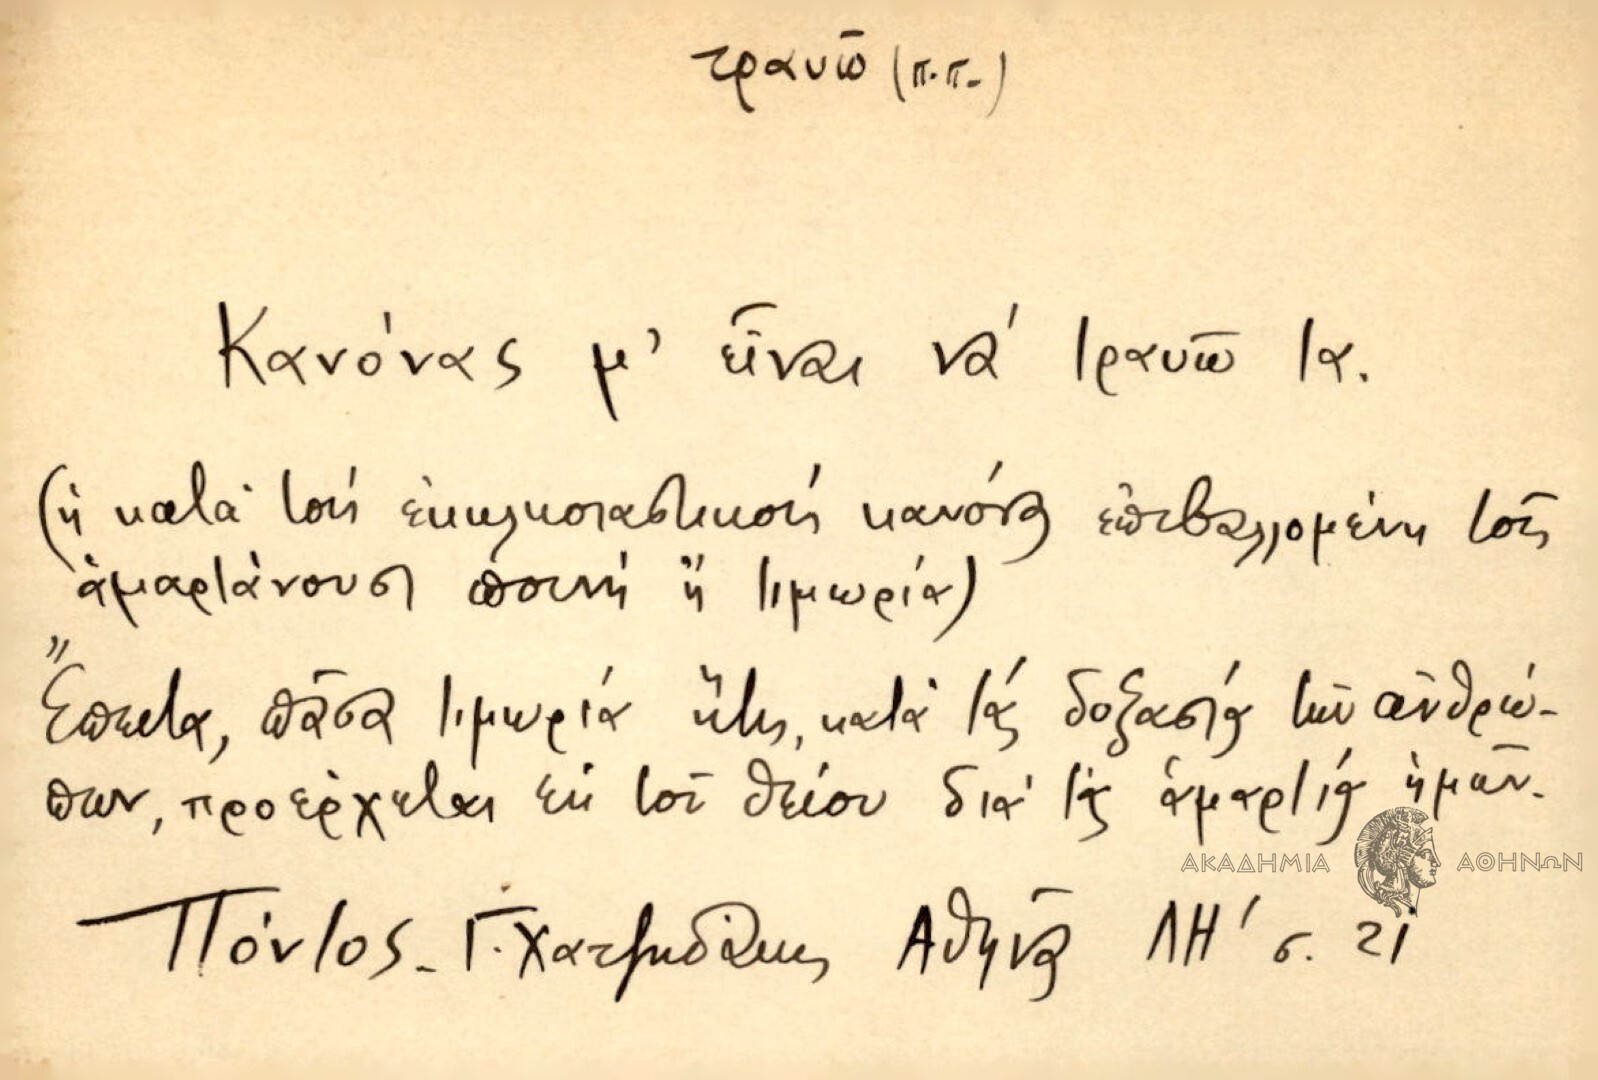 τραυῶ (π.π.)
Κανόνας μ' εἶναι νά τραυῶ τα.
(ἡ κατὰ τούς ἐκκλησιαστικούς κανόνας ἐπιβαλλομένη τοῖς
ἁμαρτάνουσι ποινή ἤ τιμωρία)
Ἔπειτα, πᾶσα τιμωρία ἥτις, κατὰ τάς δοξασίας τῶν ἀνθρώ-
πων, προέρχεται ἐκ τοῦ θείου διὰ τάς ἁμαρτίας ἡμῶν.
ΑΚΑΔΗΜΙΑ ΑΘΗΝΩΝ
Πόντος - Γ. Χατζηδάκης Ἀθηνᾶ ΛΗ' σ. 21